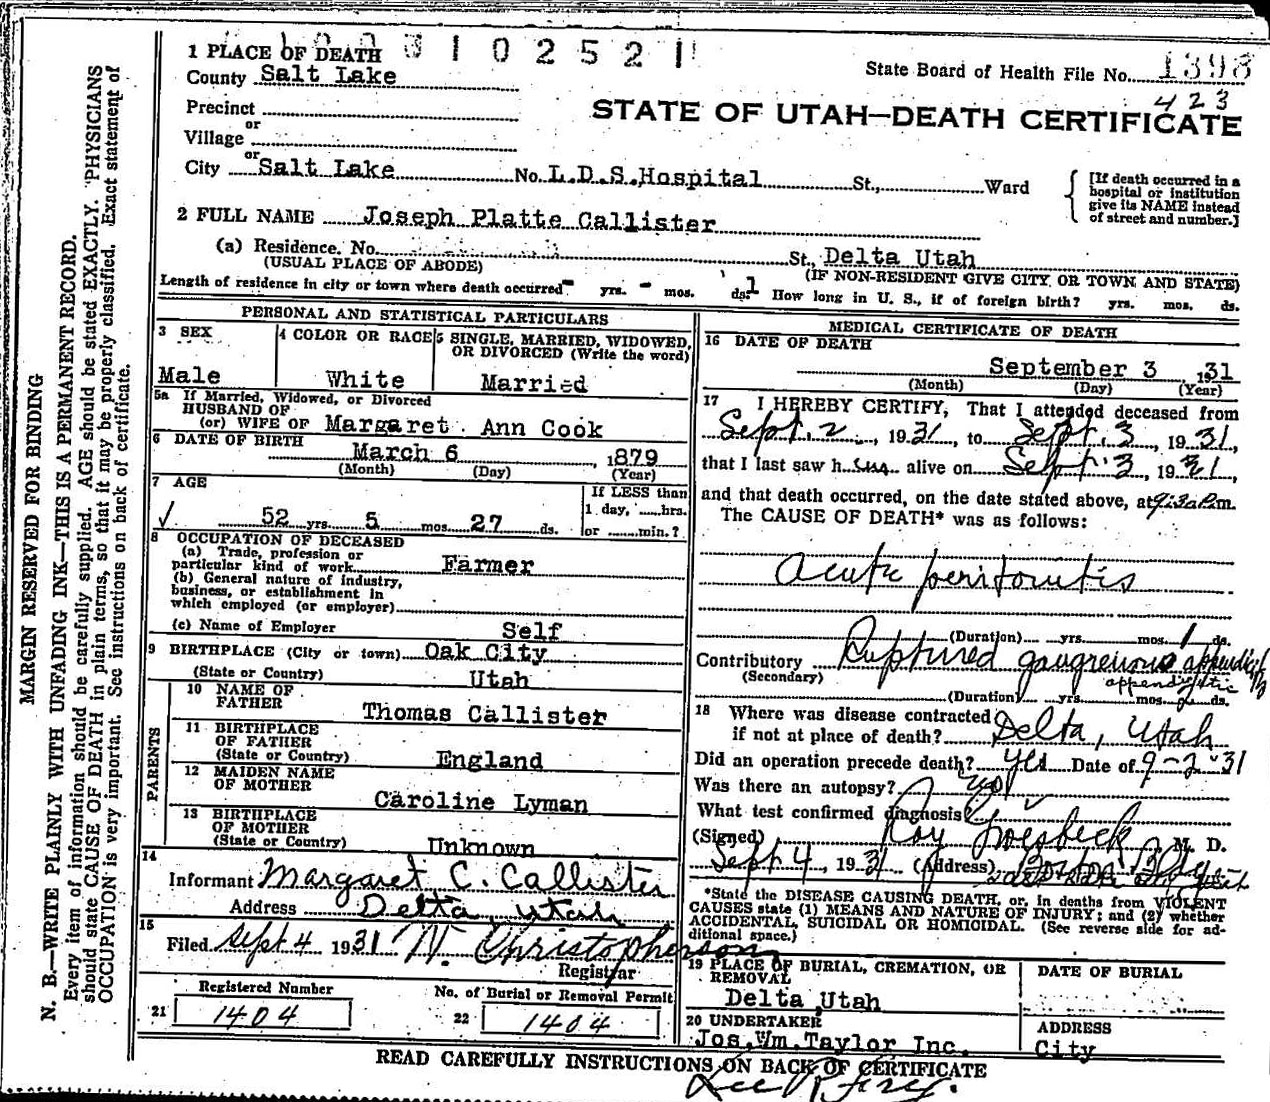 1 PLACE OF DEATH
3102521
County Salt Lake
State Board of Health File No. 1398
423
Precinct
STATE OF UTAH—DEATH CERTIFICATE
or
Village
or
City Salt Lake No. L.D.S. Hospital St., Ward
[If death occurred in a hospital or institution give its NAME instead of street and number.]
2 FULL NAME Joseph Platte Callister
(a) Residence. No. St., Delta Utah
(USUAL PLACE OF ABODE) (IF NON-RESIDENT GIVE CITY OR TOWN AND STATE)
Length of residence in city or town where death occurred - yrs. - mos. 1 ds. How long in U. S., if of foreign birth? yrs. mos. ds.
PERSONAL AND STATISTICAL PARTICULARS
3 SEX
Male
4 COLOR OR RACE
White
5 SINGLE, MARRIED, WIDOWED,
OR DIVORCED (Write the word)
Married
5a If Married, Widowed, or Divorced
HUSBAND OF
(or) WIFE OF Margaret Ann Cook
6 DATE OF BIRTH
March 6, 1879
(Month) (Day) (Year)
7 AGE
52 yrs. 5 mos. 27 ds.
If LESS than
1 day, hrs.
or min.?
8 OCCUPATION OF DECEASED
(a) Trade, profession or
particular kind of work Farmer
(b) General nature of industry,
business, or establishment in
which employed (or employer)
(c) Name of Employer Self
9 BIRTHPLACE (City or town) Oak City
(State or Country) Utah
PARENTS
10 NAME OF
FATHER Thomas Callister
11 BIRTHPLACE
OF FATHER
(State or Country) England
12 MAIDEN NAME
OF MOTHER Caroline Lyman
13 BIRTHPLACE
OF MOTHER
(State or Country) Unknown
14
Informant Margaret C. Callister
Address Delta, Utah
15
Filed Sept 4 1931 N. Christopherson
Registrar
Registered Number
21 1404
No. of Burial or Removal Permit
22 1404
MEDICAL CERTIFICATE OF DEATH
16 DATE OF DEATH
September 3 1931
(Month) (Day) (Year)
17 I HEREBY CERTIFY, That I attended deceased from
Sept. 2, 1931, to Sept. 3, 1931,
that I last saw h im alive on Sept. 3, 1931,
and that death occurred, on the date stated above, at 9:30 P.m.
The CAUSE OF DEATH* was as follows:
Acute peritonitis
(Duration) yrs. mos. 1 ds.
Contributory Ruptured gangrenous appendicitis
(Secondary)
(Duration) yrs. mos. ds.
18 Where was disease contracted
if not at place of death? Delta, Utah
Did an operation precede death? yes Date of 9-2-31
Was there an autopsy? no
What test confirmed diagnosis?
(Signed) Roy Groesbeck M. D.
Sept 4, 1931 (Address) Boston Bldg
*State the DISEASE CAUSING DEATH, or, in deaths from VIOLENT
CAUSES state (1) MEANS AND NATURE OF INJURY; and (2) whether
ACCIDENTAL, SUICIDAL OR HOMICIDAL. (See reverse side for ad-
ditional space.)
19 PLACE OF BURIAL, CREMATION, OR
REMOVAL
Delta, Utah
DATE OF BURIAL
20 UNDERTAKER
Jos. Wm. Taylor Inc.
ADDRESS
City
READ CAREFULLY INSTRUCTIONS ON BACK OF CERTIFICATE
MARGIN RESERVED FOR BINDING
N. B.—WRITE PLAINLY WITH UNFADING INK—THIS IS A PERMANENT RECORD.
Every item of information should be carefully supplied. AGE should be stated EXACTLY. PHYSICIANS
should state CAUSE OF DEATH in plain terms, so that it may be properly classified. Exact statement of
OCCUPATION is very important. See instructions on back of certificate.